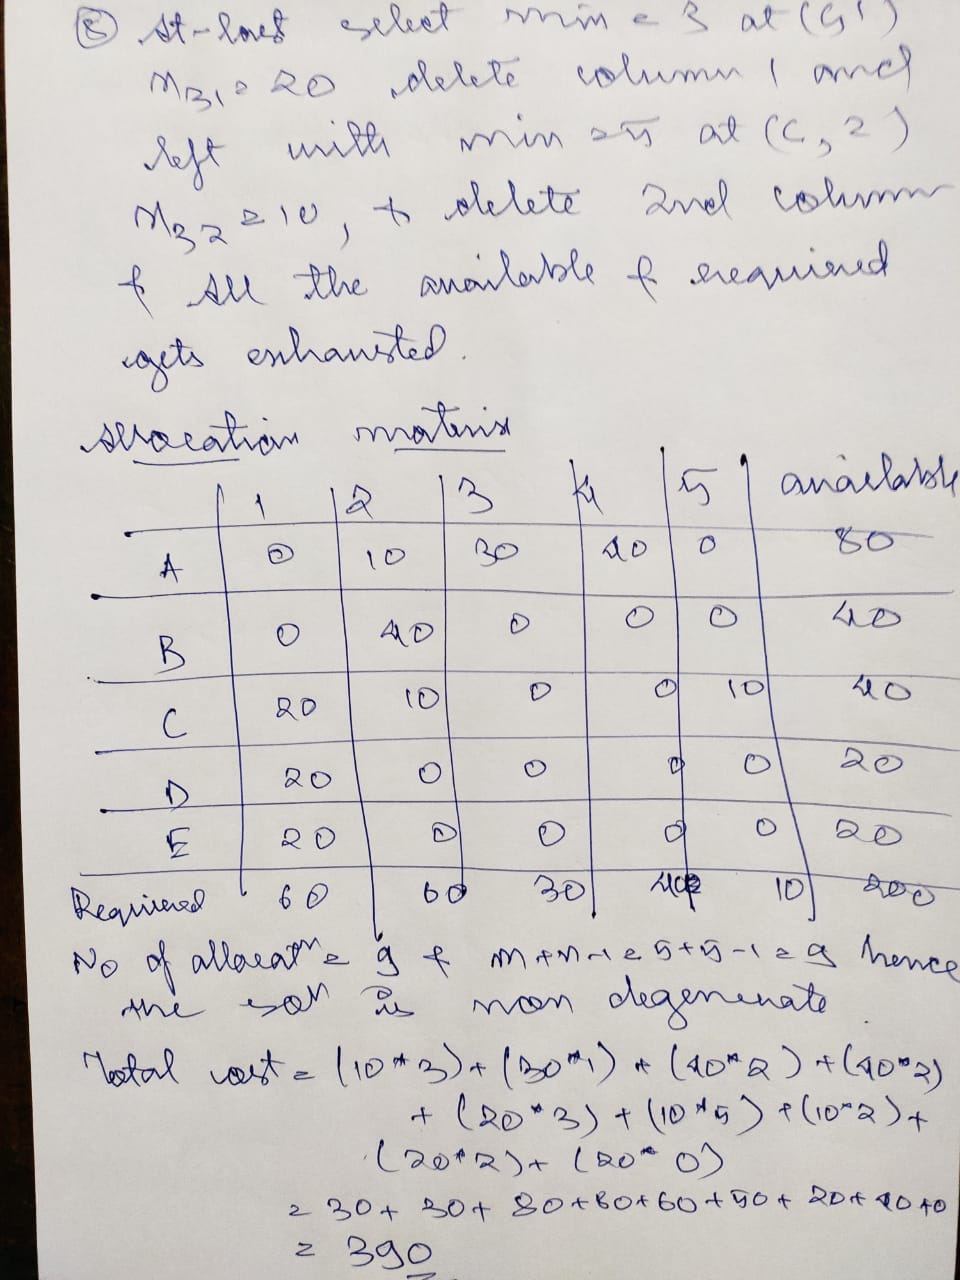 ⑧ At-last select min = 3 at (C,1)
x31 = 20 delete column 1 and
left with min = 5 at (C, 2)
x32 = 10, & delete 2nd column
& All the available & required
gets exhausted.
Allocation matrix
1 2 3 4 5 available
A 0 10 30 40 0 80
B 0 40 0 0 0 40
C 20 10 0 0 10 40
D 20 0 0 0 0 20
E 20 0 0 0 0 20
Required 60 60 30 40 10 200
No of allocatn = 9 & m+n-1 = 5+5-1 = 9 hence
the soln is non degenerate.
Total cost = (10*3) + (30*1) + (40*2) + (40*2)
+ (20*3) + (10*5) + (10*2) +
(20*2) + (20*0)
= 30+ 30+ 80+80+60+50+ 20+40+0
= 390